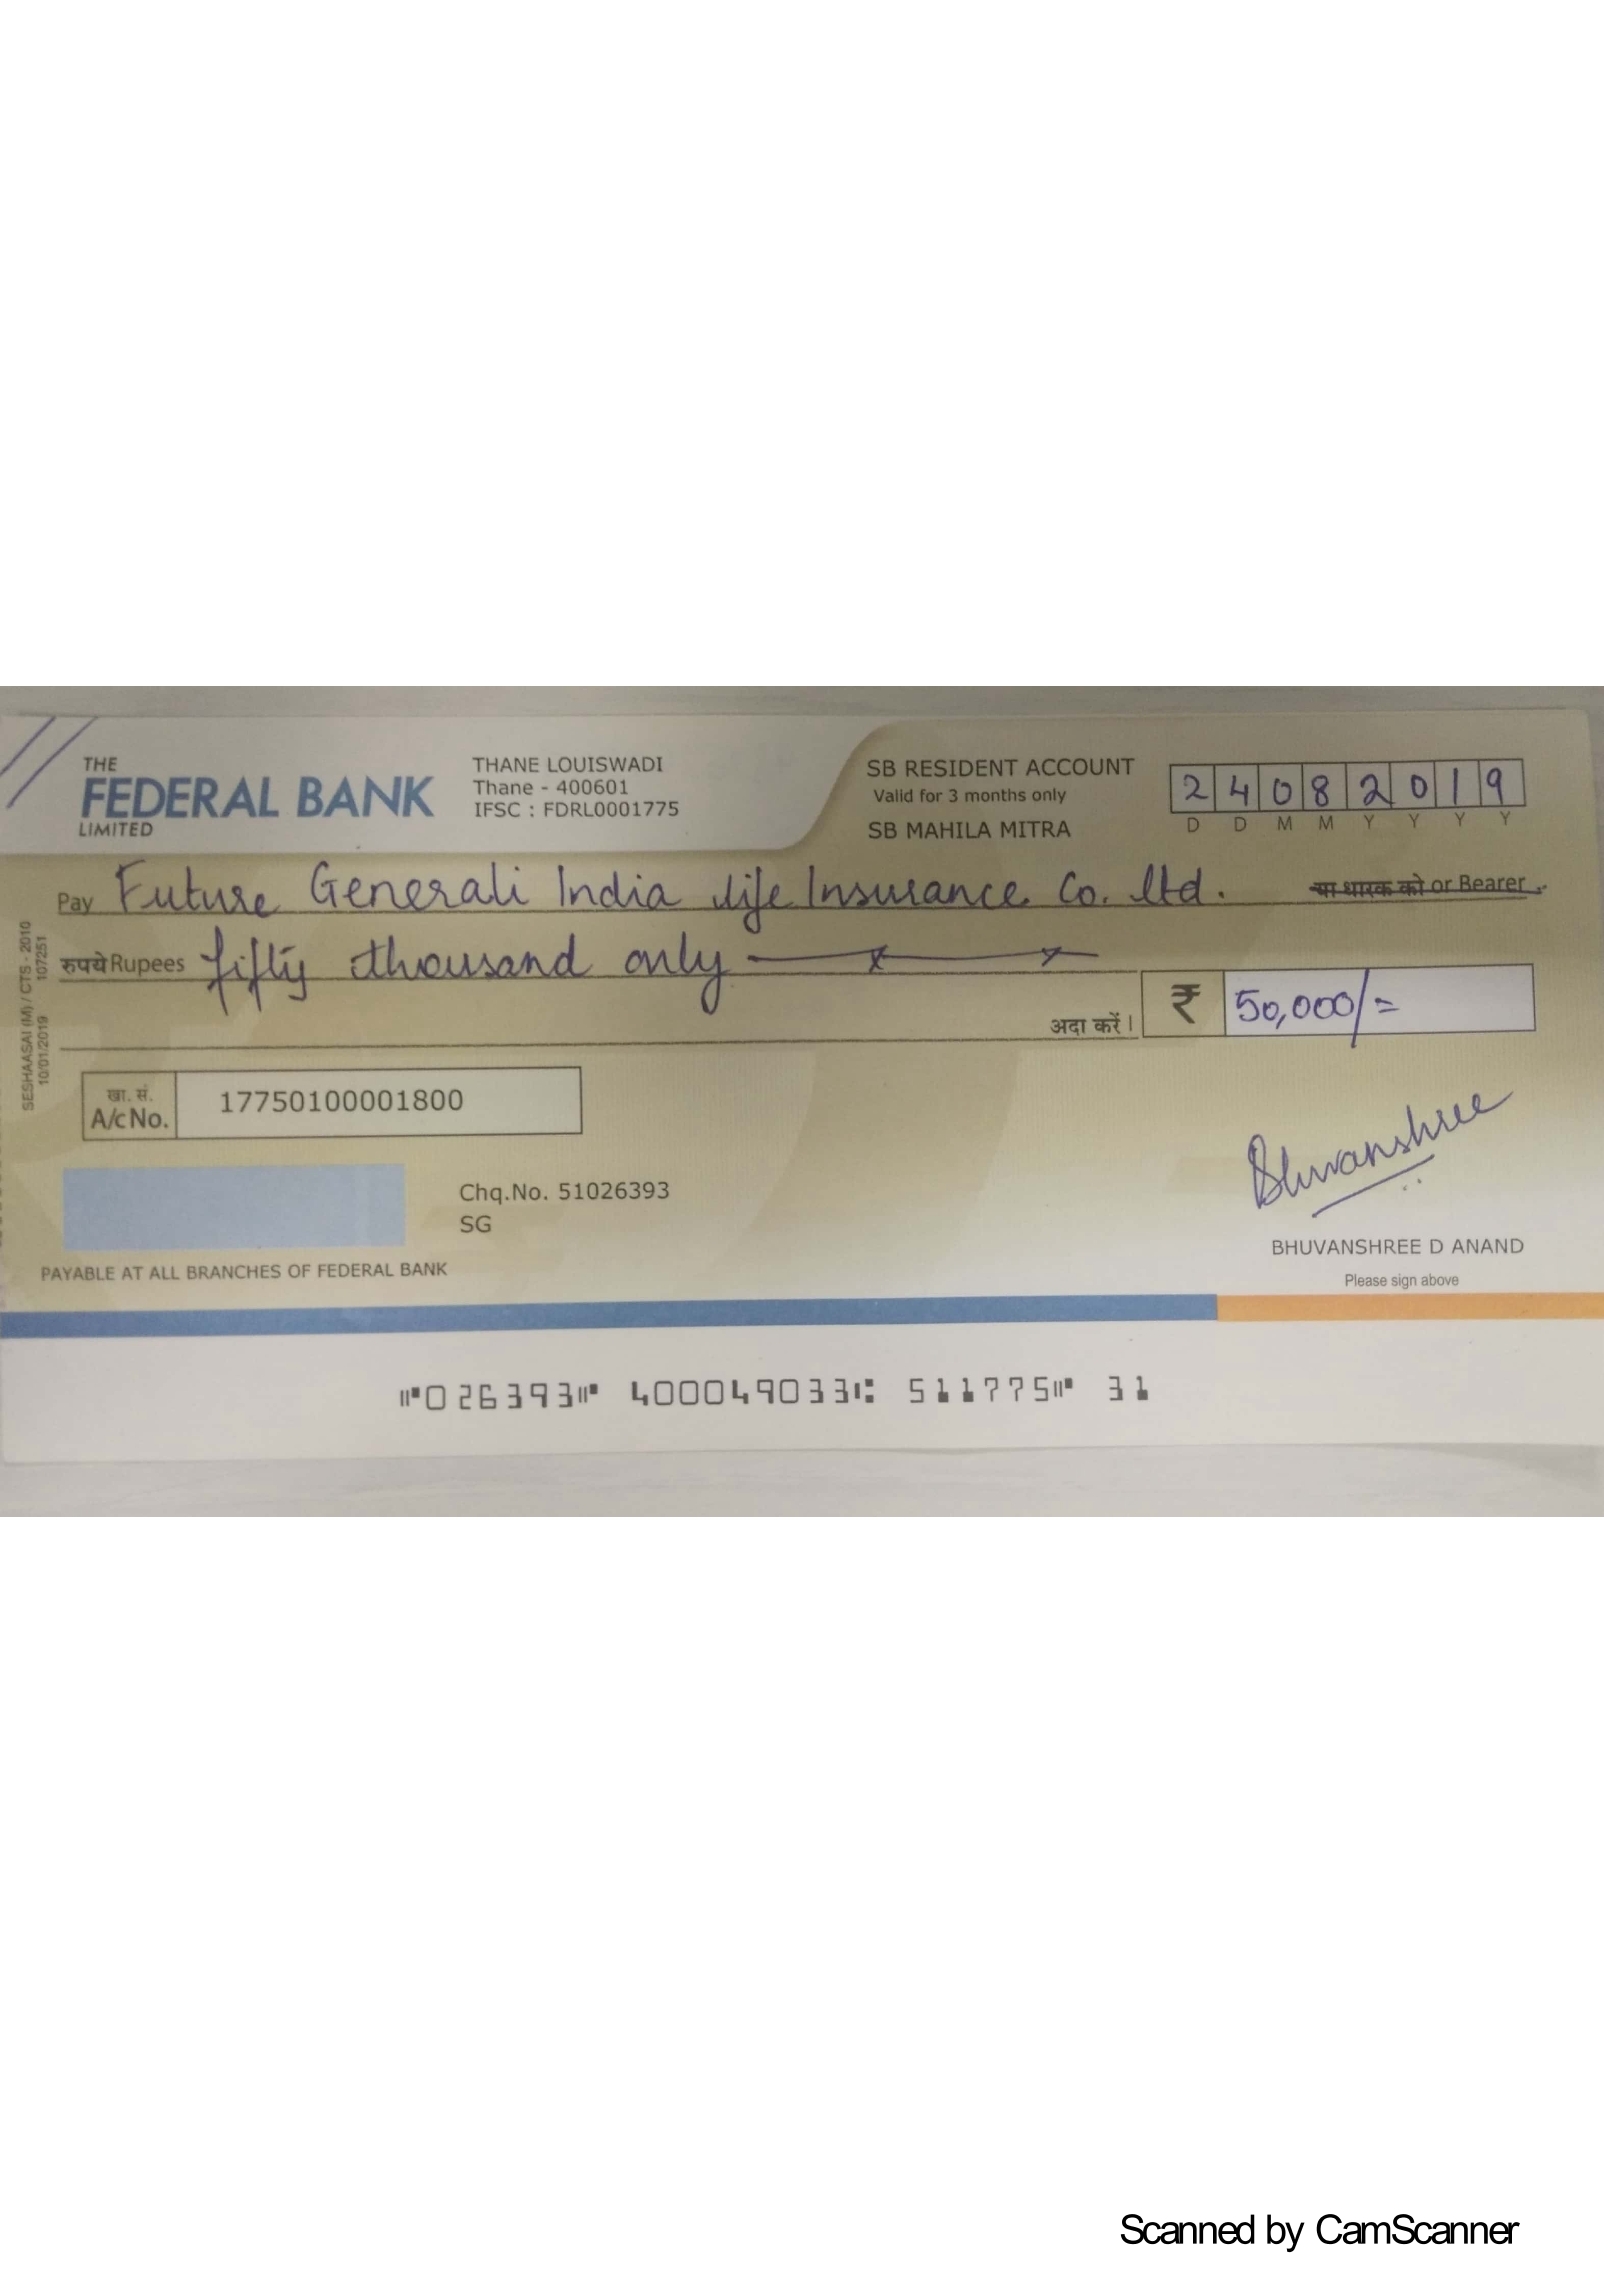 THE
FEDERAL BANK
LIMITED
THANE LOUISWADI
Thane - 400601
IFSC : FDRL0001775
SB RESIDENT ACCOUNT
Valid for 3 months only
SB MAHILA MITRA
2 4 0 8 2 0 1 9
D D M M Y Y Y Y
Pay Future Generali India Life Insurance Co. ltd. या धारक को or Bearer
रुपये Rupees fifty thousand only
अदा करें। ₹ 50,000/=
SESHAASAI (M) / CTS - 2010
10/01/2019 107251
खा. सं.
A/c No. 17750100001800
Bhuvanshree
Chq.No. 51026393
SG
BHUVANSHREE D ANAND
Please sign above
PAYABLE AT ALL BRANCHES OF FEDERAL BANK
⑈026393⑈ 400049033⑆ 511775⑈ 31
Scanned by CamScanner